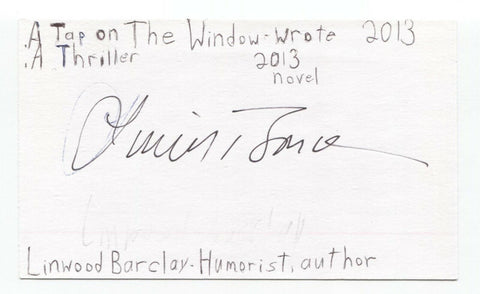 .A Tap on The Window-wrote 2013
.A Thriller 2013
novel
Linwood Barclay-Humorist, author